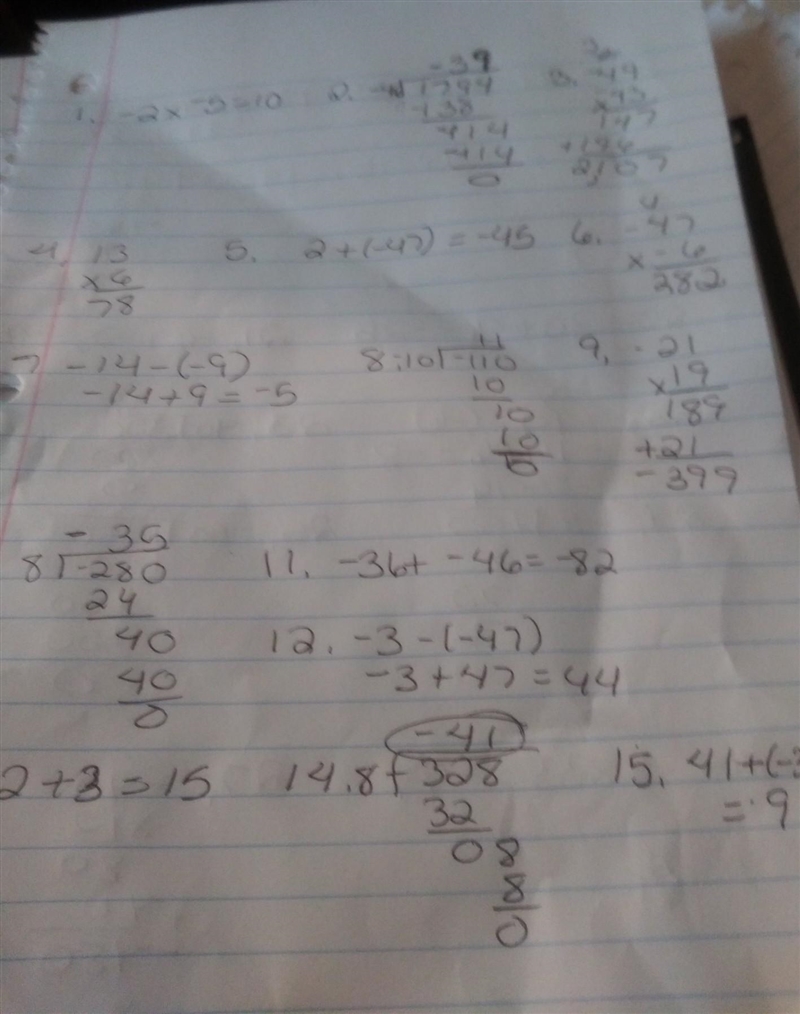 1. -2 x -5 = 10
2. -39
1794
-138
414
-414
0
3. -49
147
2107
4. 13
x6
78
5. 2+(-47) = -45
6. 4
-47
x -6
282
7 -14-(-9)
-14+9 = -5
8. -10 -110
11
10
10
10
0
9. -21
x19
189
+21
-399
-35
8 -280
24
40
40
0
11. -36+ -46= -82
12. -3-(-47)
-3+47=44
2+3=15
14. -41
8 328
32
08
8
0
15. 41+(-3
= 9